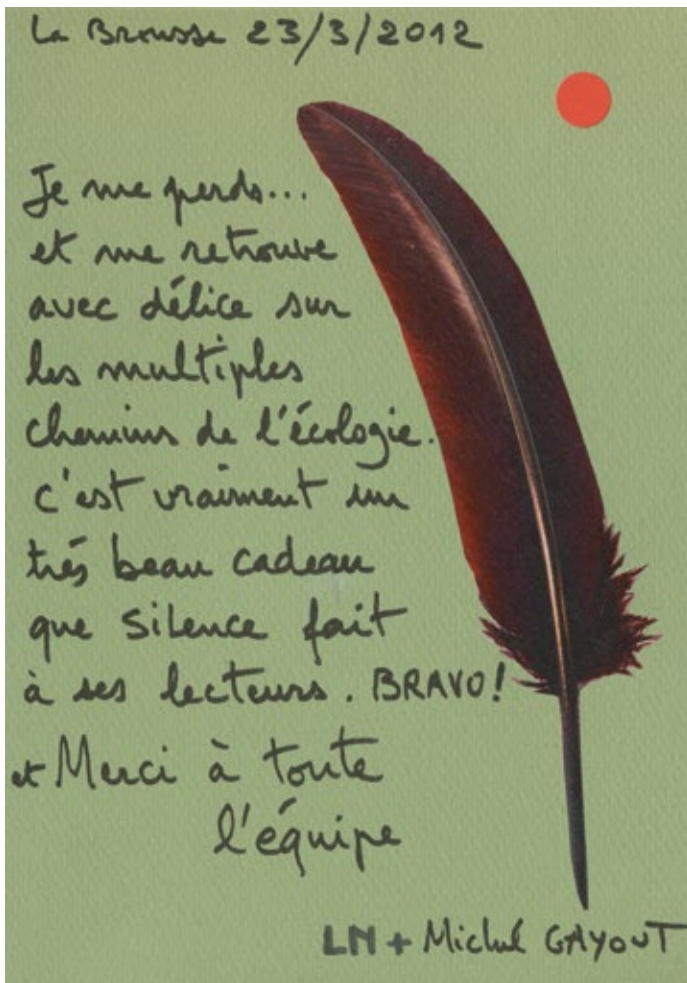 La Brousse 23/3/2012
Je me perds...
et me retrouve
avec délice sur
les multiples
chemins de l'écologie.
c'est vraiment un
très beau cadeau
que Silence fait
à ses lecteurs. BRAVO!
et Merci à toute
l'équipe
LN + Michel GAYOUT